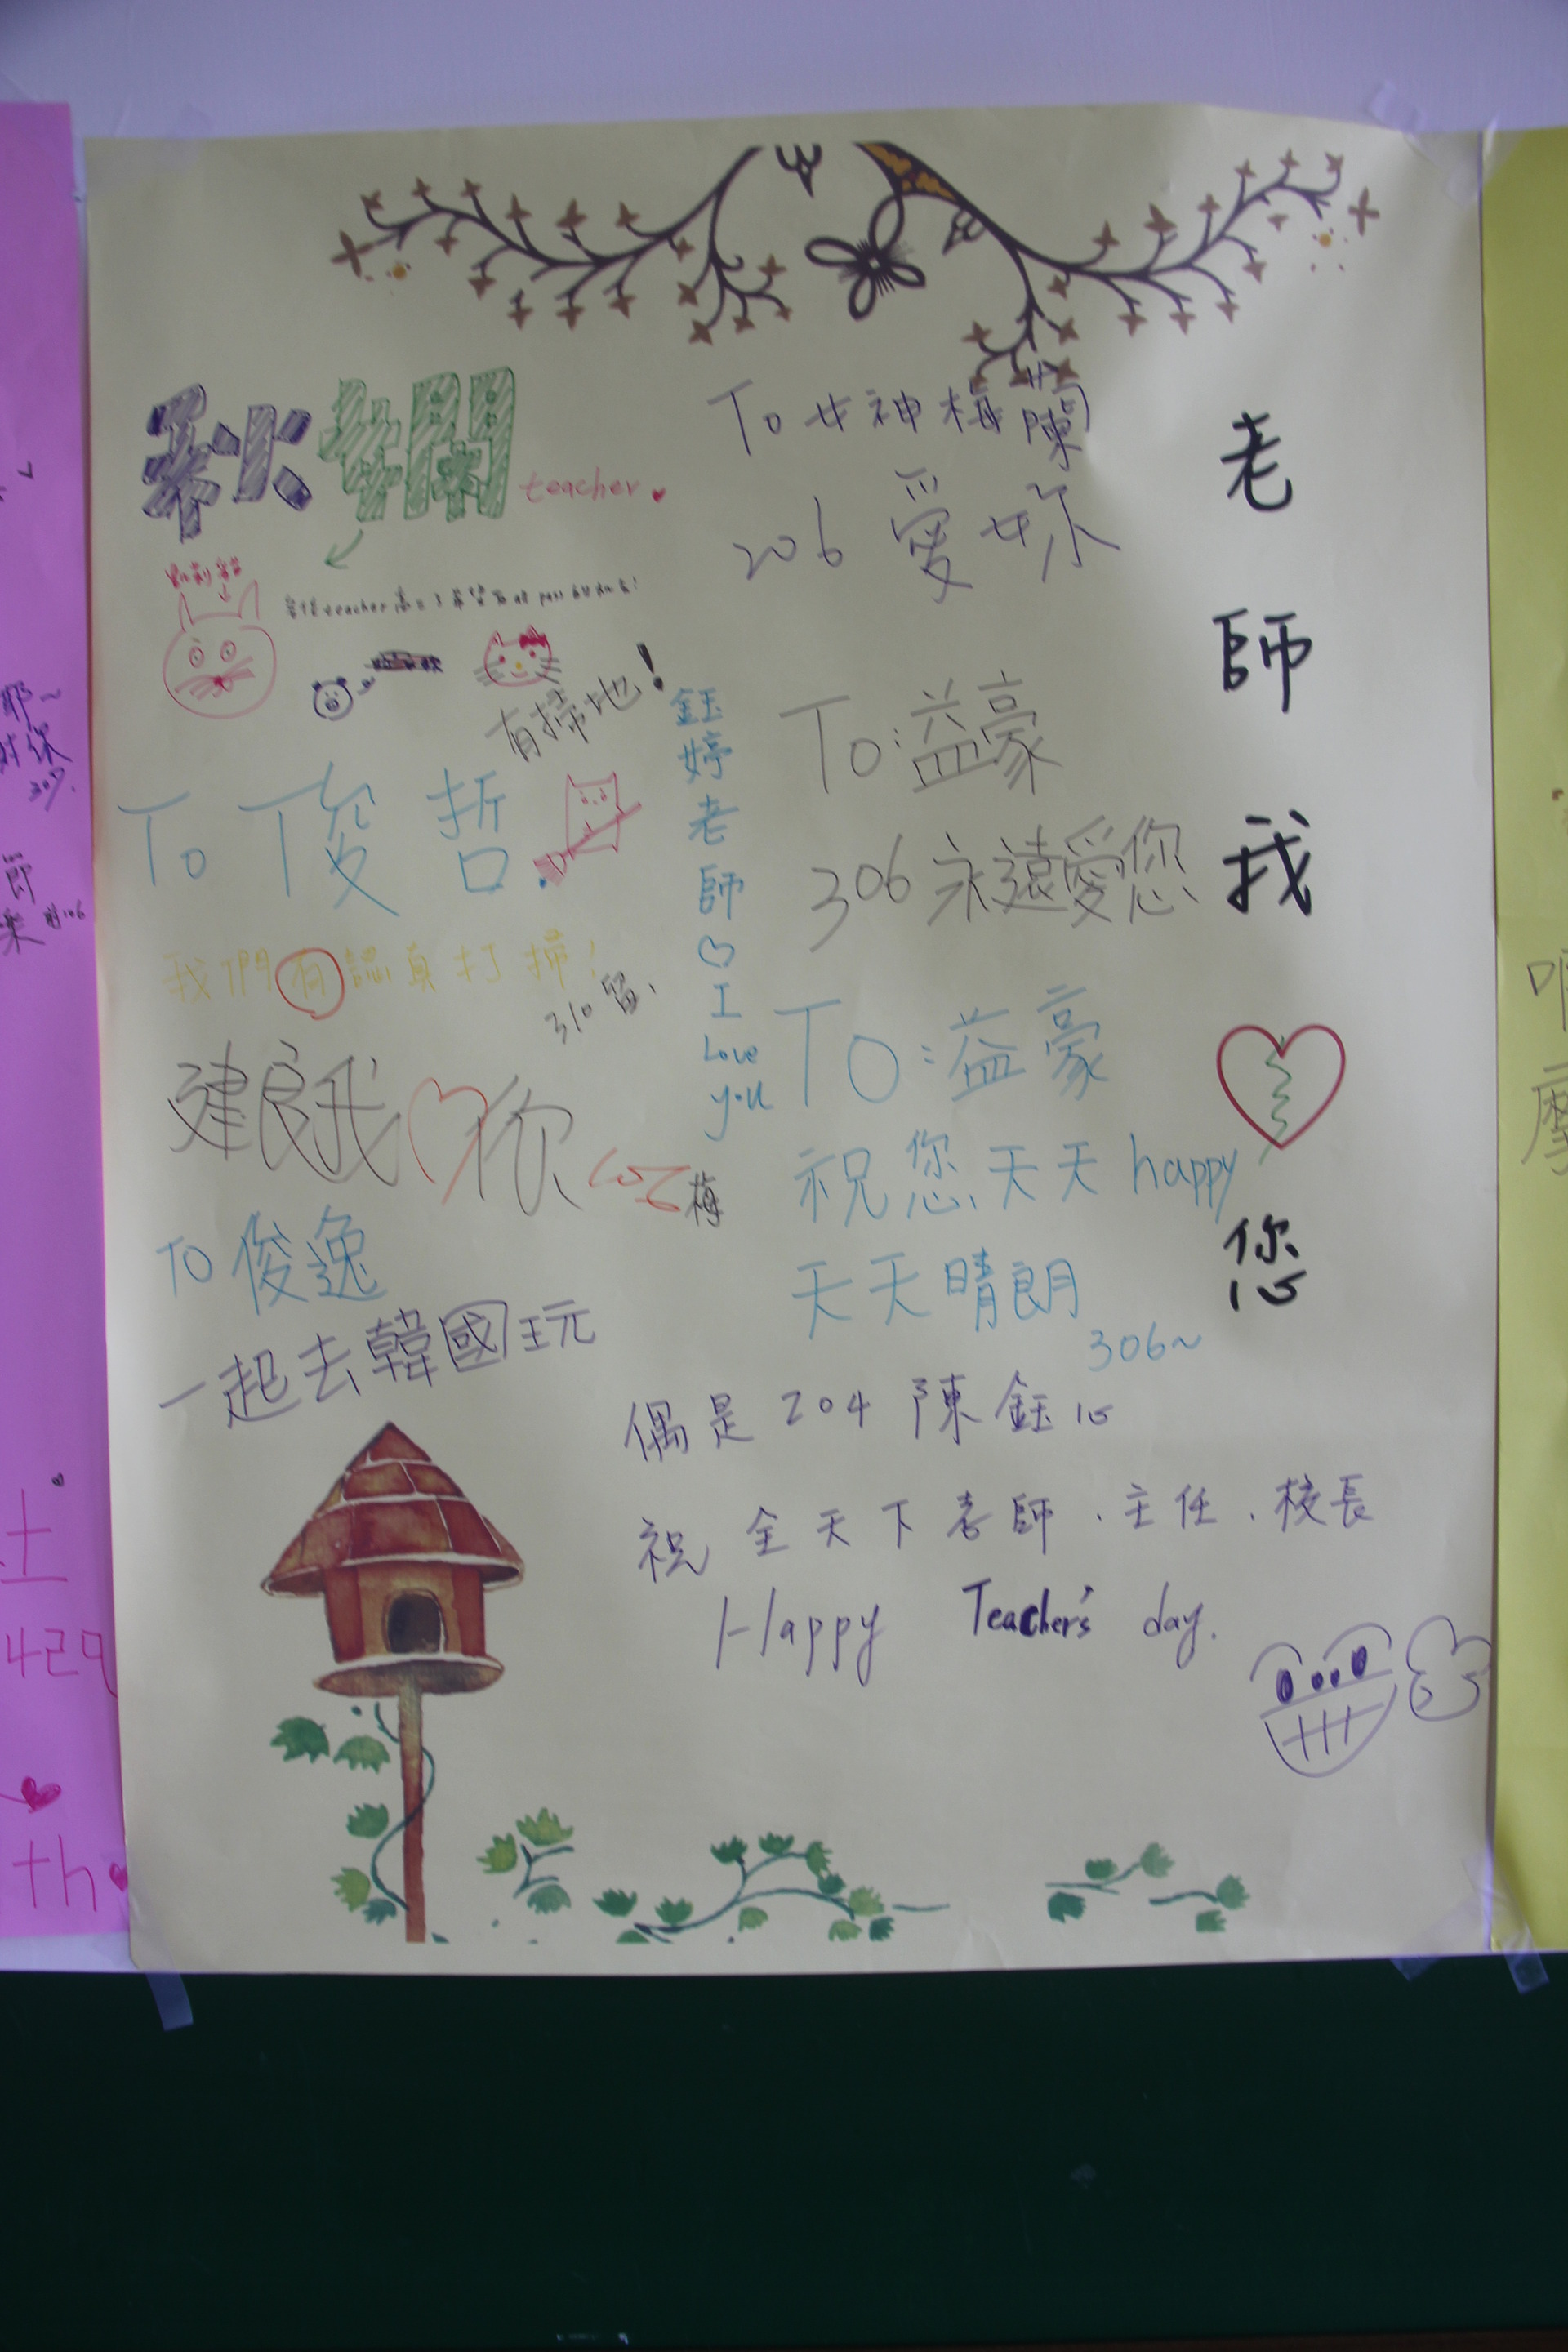 秋嫻
teacher
凱莉貓
有掃地!
To 俊哲
我們有認真打掃!
310 留.
建良我♡你
梅
To 俊逸
一起去韓國玩
鈺
婷
老
師
♡
I
Love
you
To 女神梅蘭
206 愛妳
To:益豪
306 永遠愛您
To:益豪
祝您天天happy
天天晴朗
306~
偶是 204 陳鈺心
祝 全天下老師、主任、校長
Happy Teacher's day.
老
師
我
♡
您
耶~
309.
節
樂
土
429
th